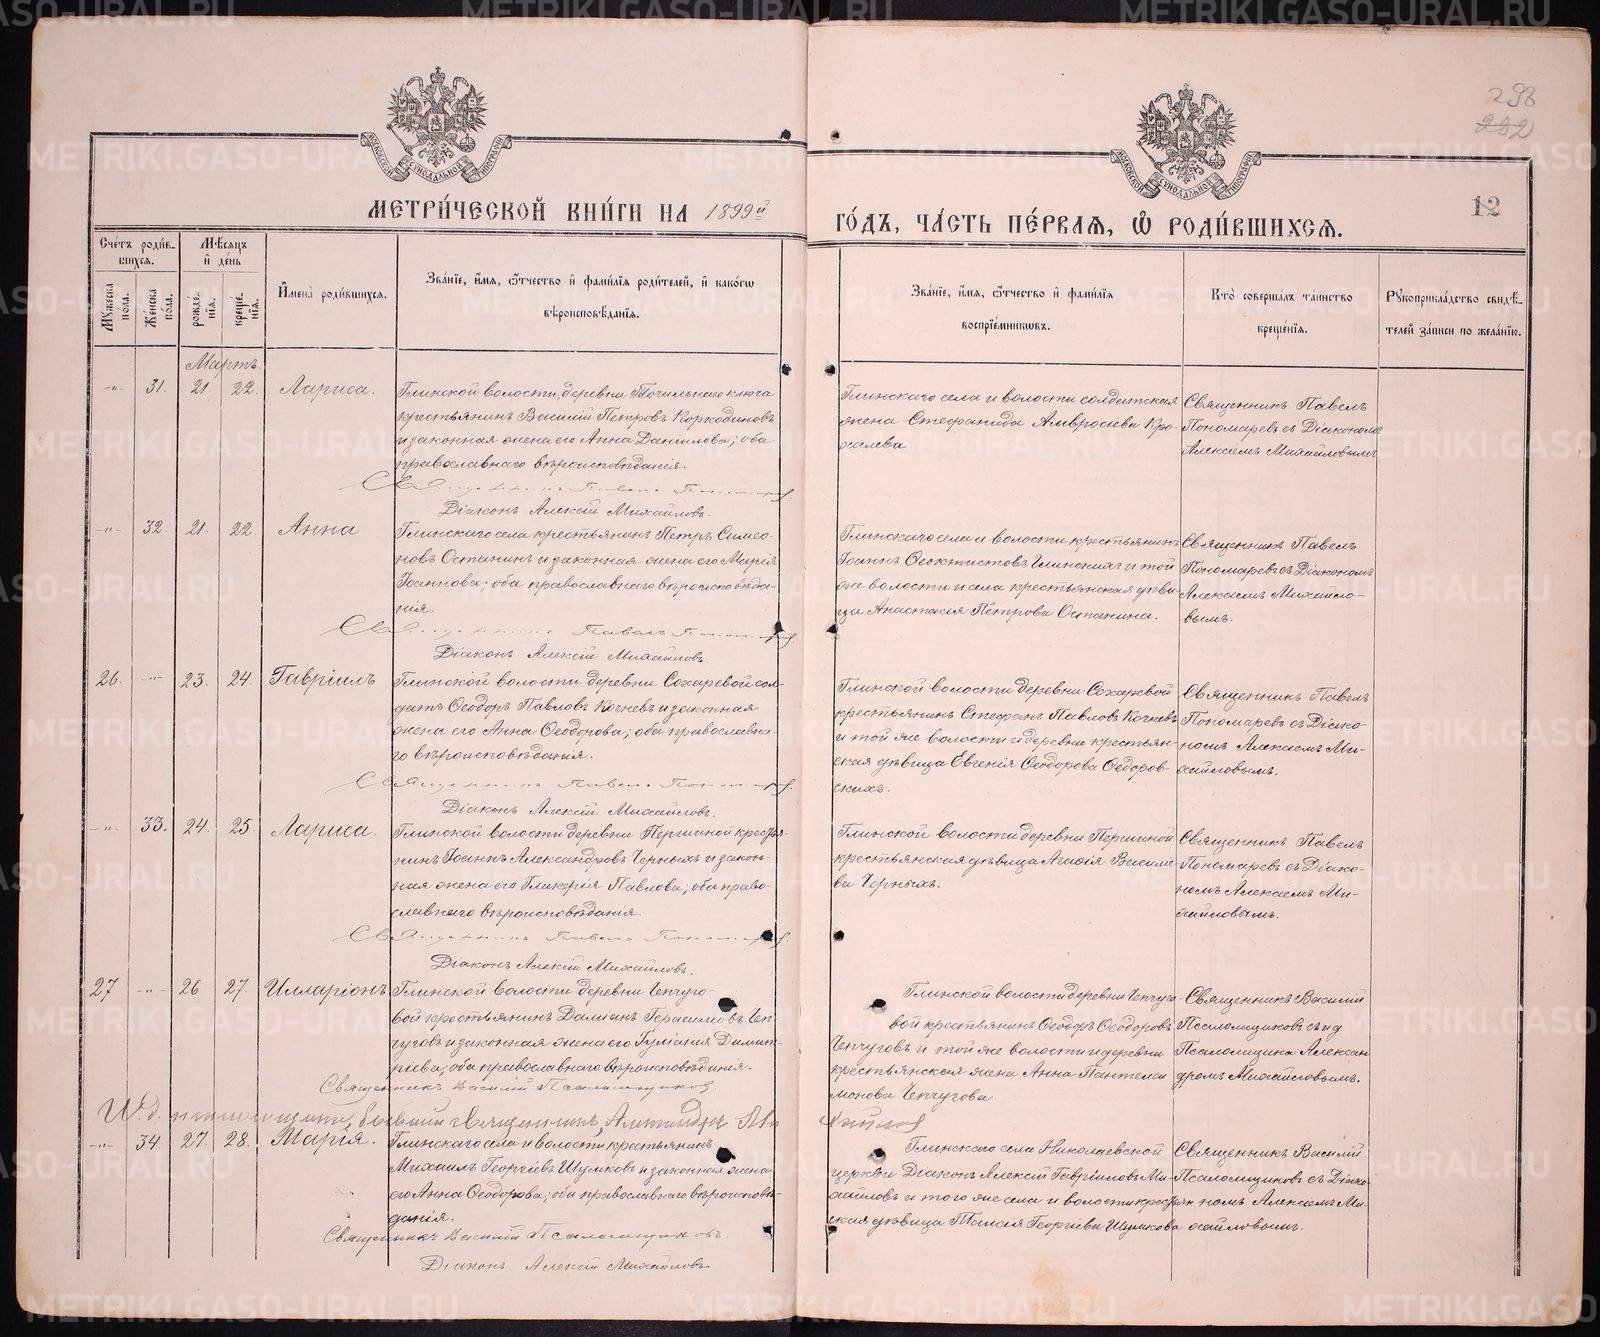 298
282
МОСКОВСКОЙ СУНОДАЛЬНОЙ ТИПОГРАФІИ
МОСКОВСКОЙ СУНОДАЛЬНОЙ ТИПОГРАФІИ
МЕТРИ́ЧЕСКОЙ КНИ́ГИ НА 1899й
ГО́ДЪ, ЧА́СТЬ ПЕ́РВАЯ, Ѡ РОДИ́ВШИХСЯ.
12
Сче́тъ роди́в-
шихся.
Мѣсяцъ
и҆ де́нь
Мꙋжеска по́ла.
Же́нска по́ла.
рожде́нїѧ.
креще́нїѧ.
И҆мена̀ роди́вшихся.
Зва́нїе, и҆́мя, ѻ҆́тчество и҆ фами́лїѧ роди́телей, и҆ како́гѡ
вѣроисповѣ́данїѧ.
Зва́нїе, и҆́мя, ѻ҆́тчество и҆ фами́лїѧ
воспрїе́мникѡвъ.
Кто̀ соверша́лъ та́инство
креще́нїѧ.
Рꙋкоприкла́дство свидѣ́-
телей за́писи по жела́нїю.
Мартъ
-"- 31. 21. 22. Лариса.
Глинской волости, деревни Точильнаго ключа
крестьянинъ Василій Петровъ Коркодиновъ
и законная жена его Анна Данилова; оба
православнаго вѣроисповѣданія.
Священникъ Павелъ Пономарев.
Діаконъ Алексій Михайловъ.
Глинскаго села и волости солдатская
жена Стефанида Амвросіева Кро-
халева
Священникъ Павелъ
Пономаревъ съ Діакономъ
Алексіемъ Михайловымъ
-"- 32. 21. 22. Анна
Глинскаго села крестьянинъ Петръ Симео-
новъ Останинъ и законная жена его Марія
Іоаннова; оба православнаго вѣроисповѣда-
нія.
Священникъ Павелъ Пономарев.
Діаконъ Алексій Михайловъ
Глинскаго села и волости крестьянинъ
Іоаннъ Ѳеоктистовъ Глинскихъ и той
же волости и села крестьянская дѣви-
ца Анастасія Петрова Останина.
Священникъ Павелъ
Пономаревъ съ Діакономъ
Алексіемъ Михайло-
вымъ.
26. -"- 23. 24. Гавріилъ
Глинской волости деревни Сохаревой сол-
датъ Ѳеодоръ Павловъ Кочневъ и законная
жена его Анна Ѳеодорова; оба православна-
го вѣроисповѣданія.
Священникъ Павелъ Пономарев.
Діаконъ Алексій Михайловъ.
Глинской волости деревни Сохаревой
крестьянинъ Стефанъ Павловъ Кочневъ
и той же волости и деревни крестьян-
ская дѣвица Евгенія Ѳеодорова Ѳедоров-
скихъ.
Священникъ Павелъ
Пономаревъ съ Діако-
номъ Алексіемъ Ми-
хайловымъ.
-"- 33. 24. 25 Лариса
Глинской волости деревни Першиной крестья-
нинъ Іоаннъ Александровъ Черныхъ и закон-
ная жена его Гликерія Павлова; оба право-
славнаго вѣроисповѣданія.
Священникъ Павелъ Пономарев.
Діаконъ Алексій Михайловъ.
Глинской волости деревни Першиной
крестьянская дѣвица Агафія Василь-
ва Черныхъ.
Священникъ Павелъ
Пономаревъ съ Діако-
номъ Алексіемъ Ми-
хайловымъ.
27 -"- 26 27. Илларіонъ
Глинской волости деревни Чепчуго-
вой крестьянинъ Даміанъ Герасимовъ Чеп-
чуговъ и законная жена его Гуліанія Димит-
ріева; оба православнаго вѣроисповѣданія.
Священникъ Василій Псаломщиковъ
И. д. псаломщика, бывшій священникъ, Александръ Ми
хайлов
Глинской волости деревни Чепчуго-
вой крестьянинъ Ѳеодоръ Ѳеодоровъ
Чепчуговъ и той же волости и деревни
крестьянская жена Анна Пантелеи-
монова Чепчугова
Священникъ Василій
Псаломщиковъ съ и д
Псаломщика Алексан
дромъ Михайловымъ.
-"- 34 27. 28. Марія.
Глинскаго села и волости крестьянинъ
Михаилъ Георгіевъ Шумковъ и законная жена
его Анна Ѳеодорова; оба православнаго вѣроисповѣ-
данія.
Священникъ Василій Псаломщиковъ.
Діаконъ Алексій Михайловъ
Глинскаго села Николаевской
церкви Діаконъ Алексій Гавріиловъ Ми-
хайловъ и того же села и волости крестьян
ская дѣвица Таисія Георгіева Шумкова
Священникъ Василій
Псаломщиковъ съ Діако-
номъ Алексіемъ Ми-
хайловымъ.
METRIKI.GASO-URAL.RU